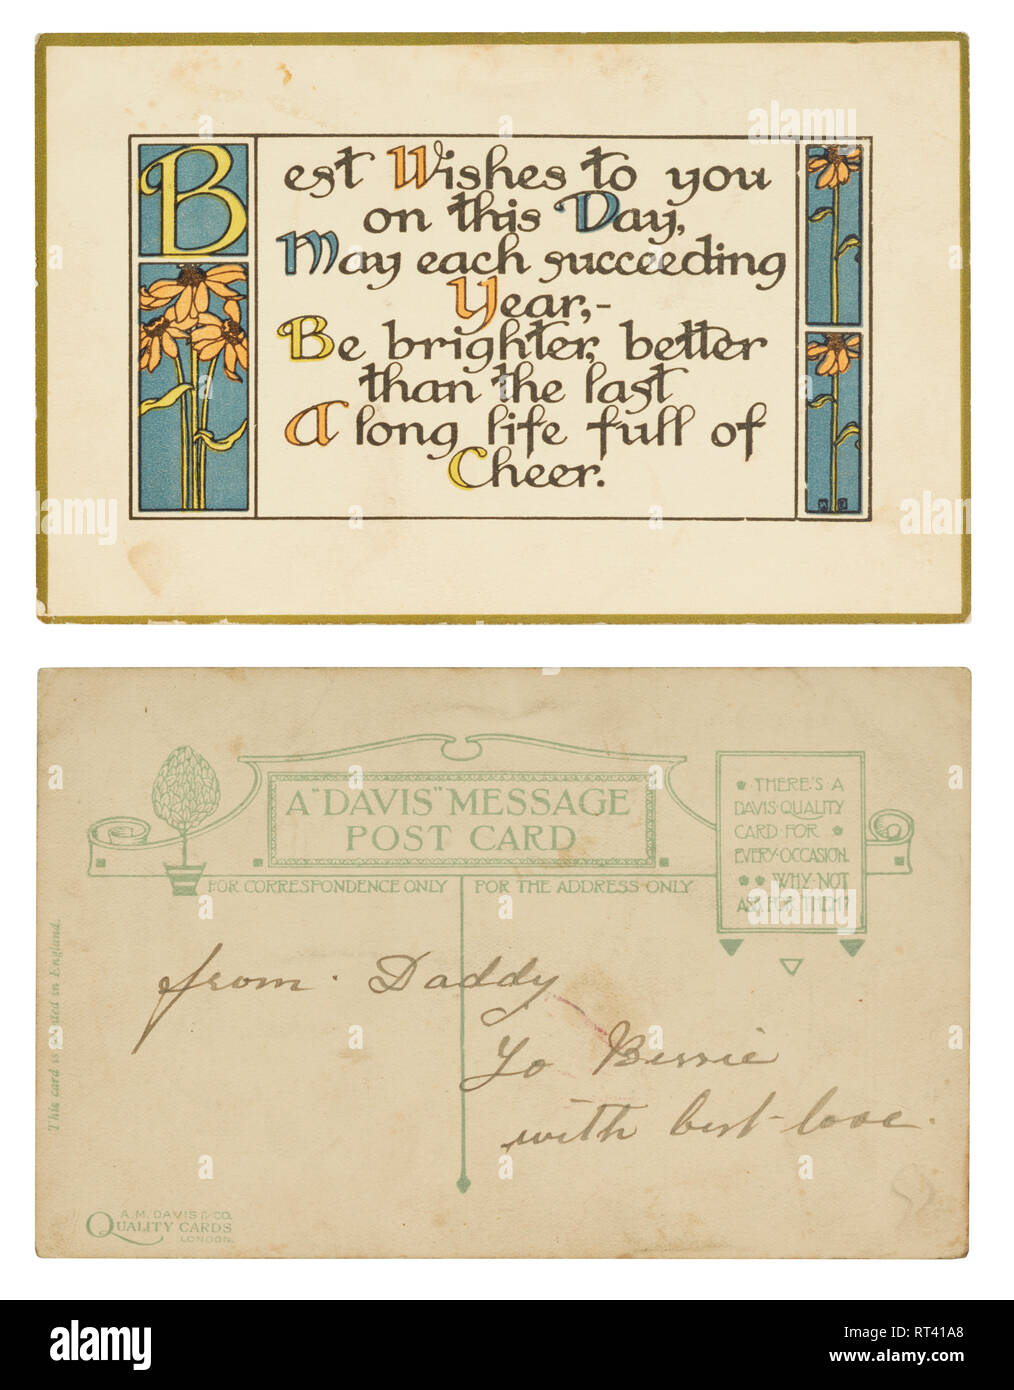 Best Wishes to you
on this Day,
May each succeeding
Year,-
Be brighter, better
than the last
A long life full of
Cheer.
A "DAVIS" MESSAGE
POST CARD
THERE'S A
DAVIS·QUALITY
CARD FOR
EVERY·OCCASION.
WHY·NOT
ASK FOR THEM?
FOR CORRESPONDENCE ONLY
FOR THE ADDRESS ONLY
from. Daddy
To Bessie
with best love.
This card is printed in England.
A. M. DAVIS & CO.
QUALITY CARDS
LONDON.
alamy
Image ID: RT41A8
www.alamy.com